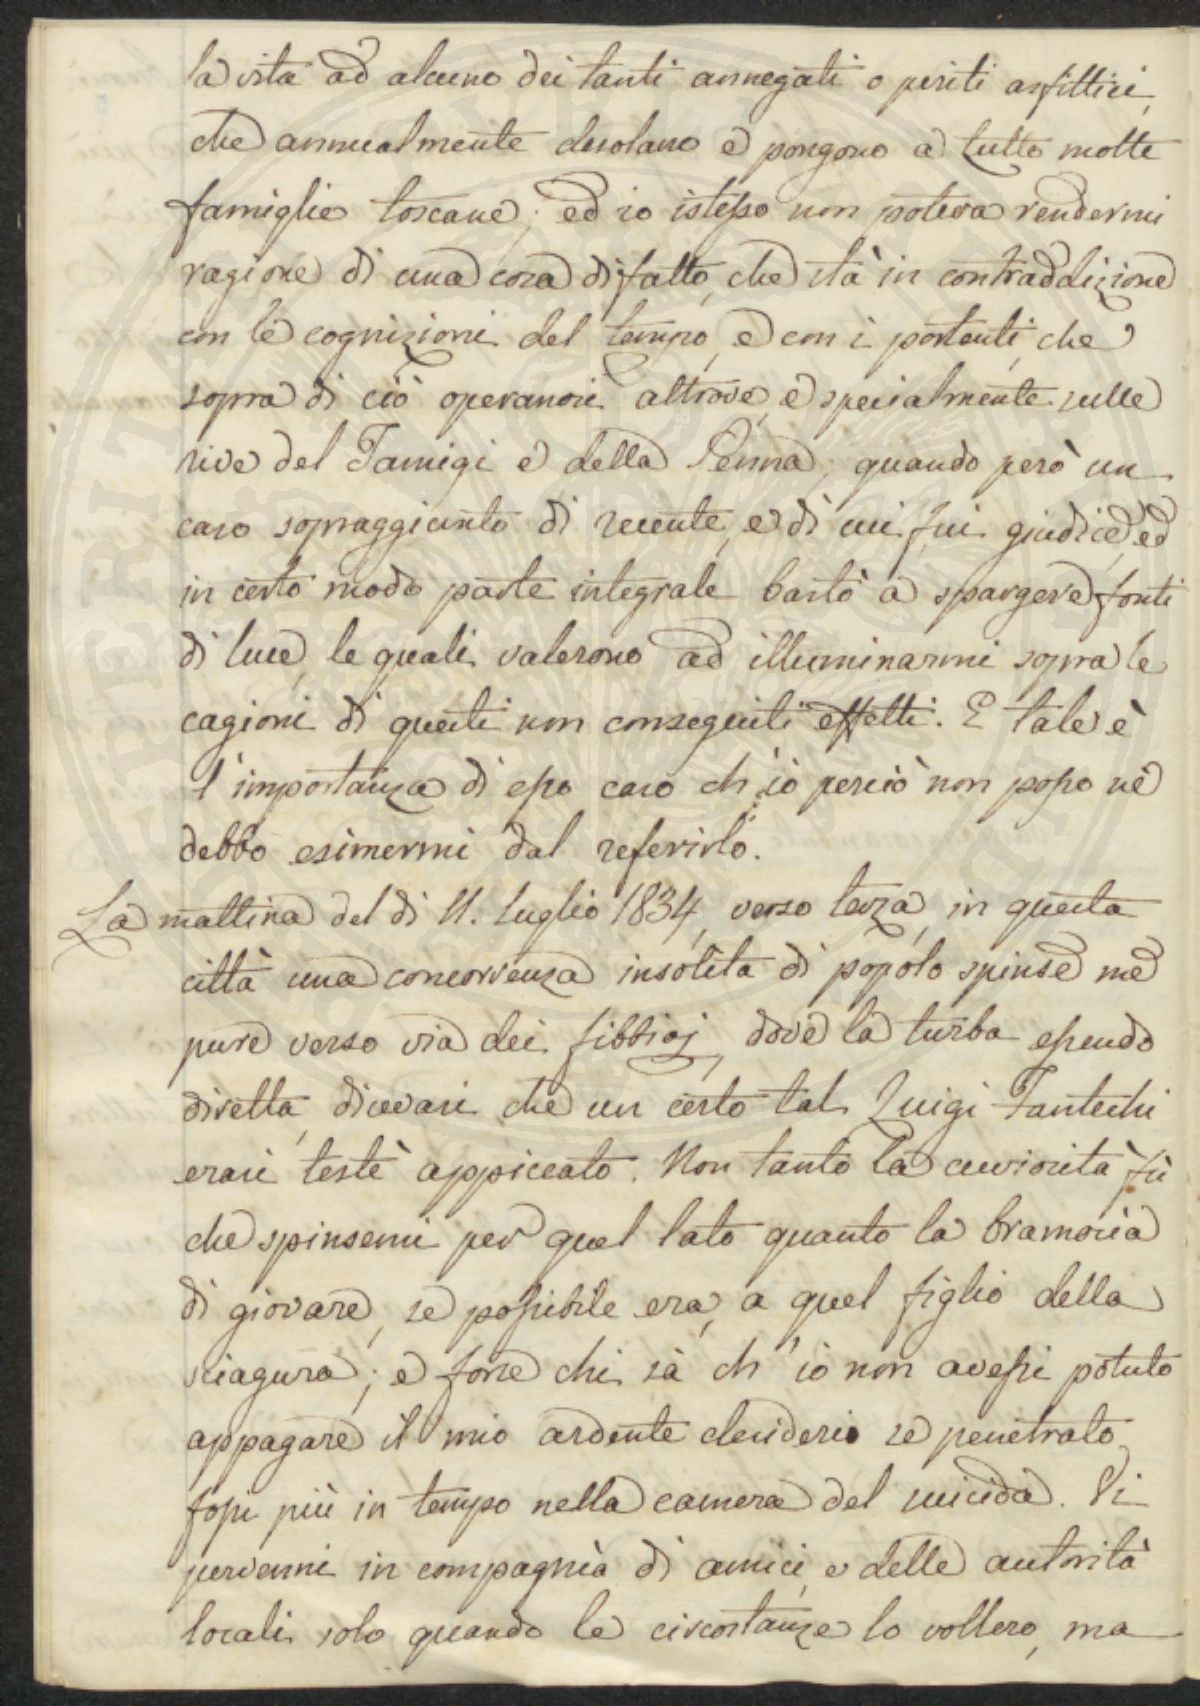 la vita ad alcuno dei tanti annegati o periti asfittici,
che annualmente desolano e pongono a lutto molte
famiglie toscane; ed io istesso non poteva rendermi
ragione di una cosa di fatto, che stà in contraddizione
con le cognizioni del tempo, e con i portenti, che
sopra di ciò operansi altrove, e specialmente sulle
rive del Tamigi e della Senna; quando però un
caso sopraggiunto di recente, e di cui fui giudice, ed
in certo modo parte integrale bastò a spargere fonti
di luce, le quali valerono ad illuminarmi sopra le
cagioni di questi non conseguiti effetti. E tale è
l'importanza di esso caso ch'io perciò non posso nè
debbo esimermi dal referirlo.
La mattina del dì 11. luglio 1834, verso terza, in questa
città una concorrenza insolita di popolo spinse me
pure verso via dei fibbiaj, dove la turba essendo
diretta, dicevasi che un certo tal Luigi Fantechi
erasi testè appiccato. Non tanto la curiosità fù
che spinsemi per quel lato quanto la bramosia
di giovare, se possibile era, a quel figlio della
sciagura; e forse chi sà ch'io non avessi potuto
appagare il mio ardente desiderio se penetrato
fossi più in tempo nella camera del suicida. Vi
pervenni in compagnia di amici, e delle autorità
locali solo quando le circostanze lo vollero, ma